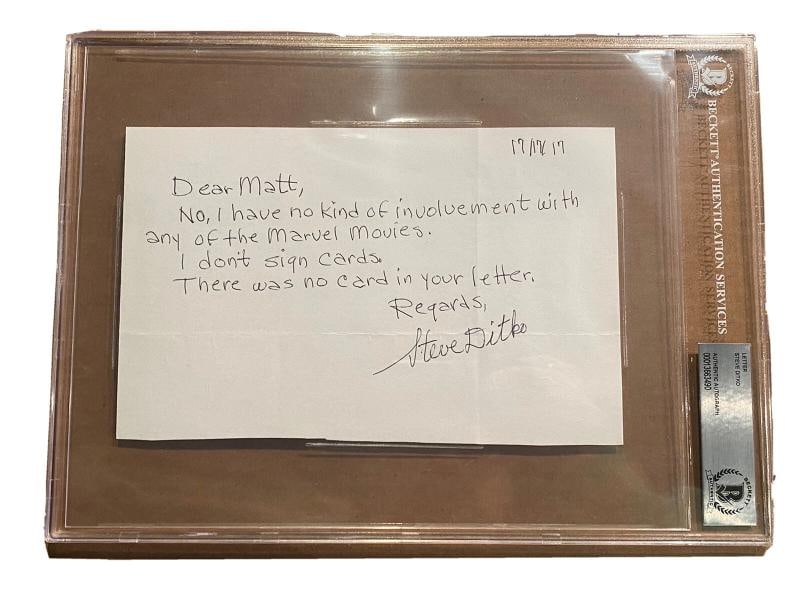 17/17/17
Dear Matt,
No, I have no kind of involvement with
any of the Marvel Movies.
I don't sign cards.
There was no card in your letter.
Regards,
Steve Ditko
BECKETT AUTHENTICATION SERVICES
BECKETT
AUTHENTIC
LETTER
STEVE DITKO
AUTHENTIC AUTOGRAPH
00013663490
BECKETT
AUTHENTIC